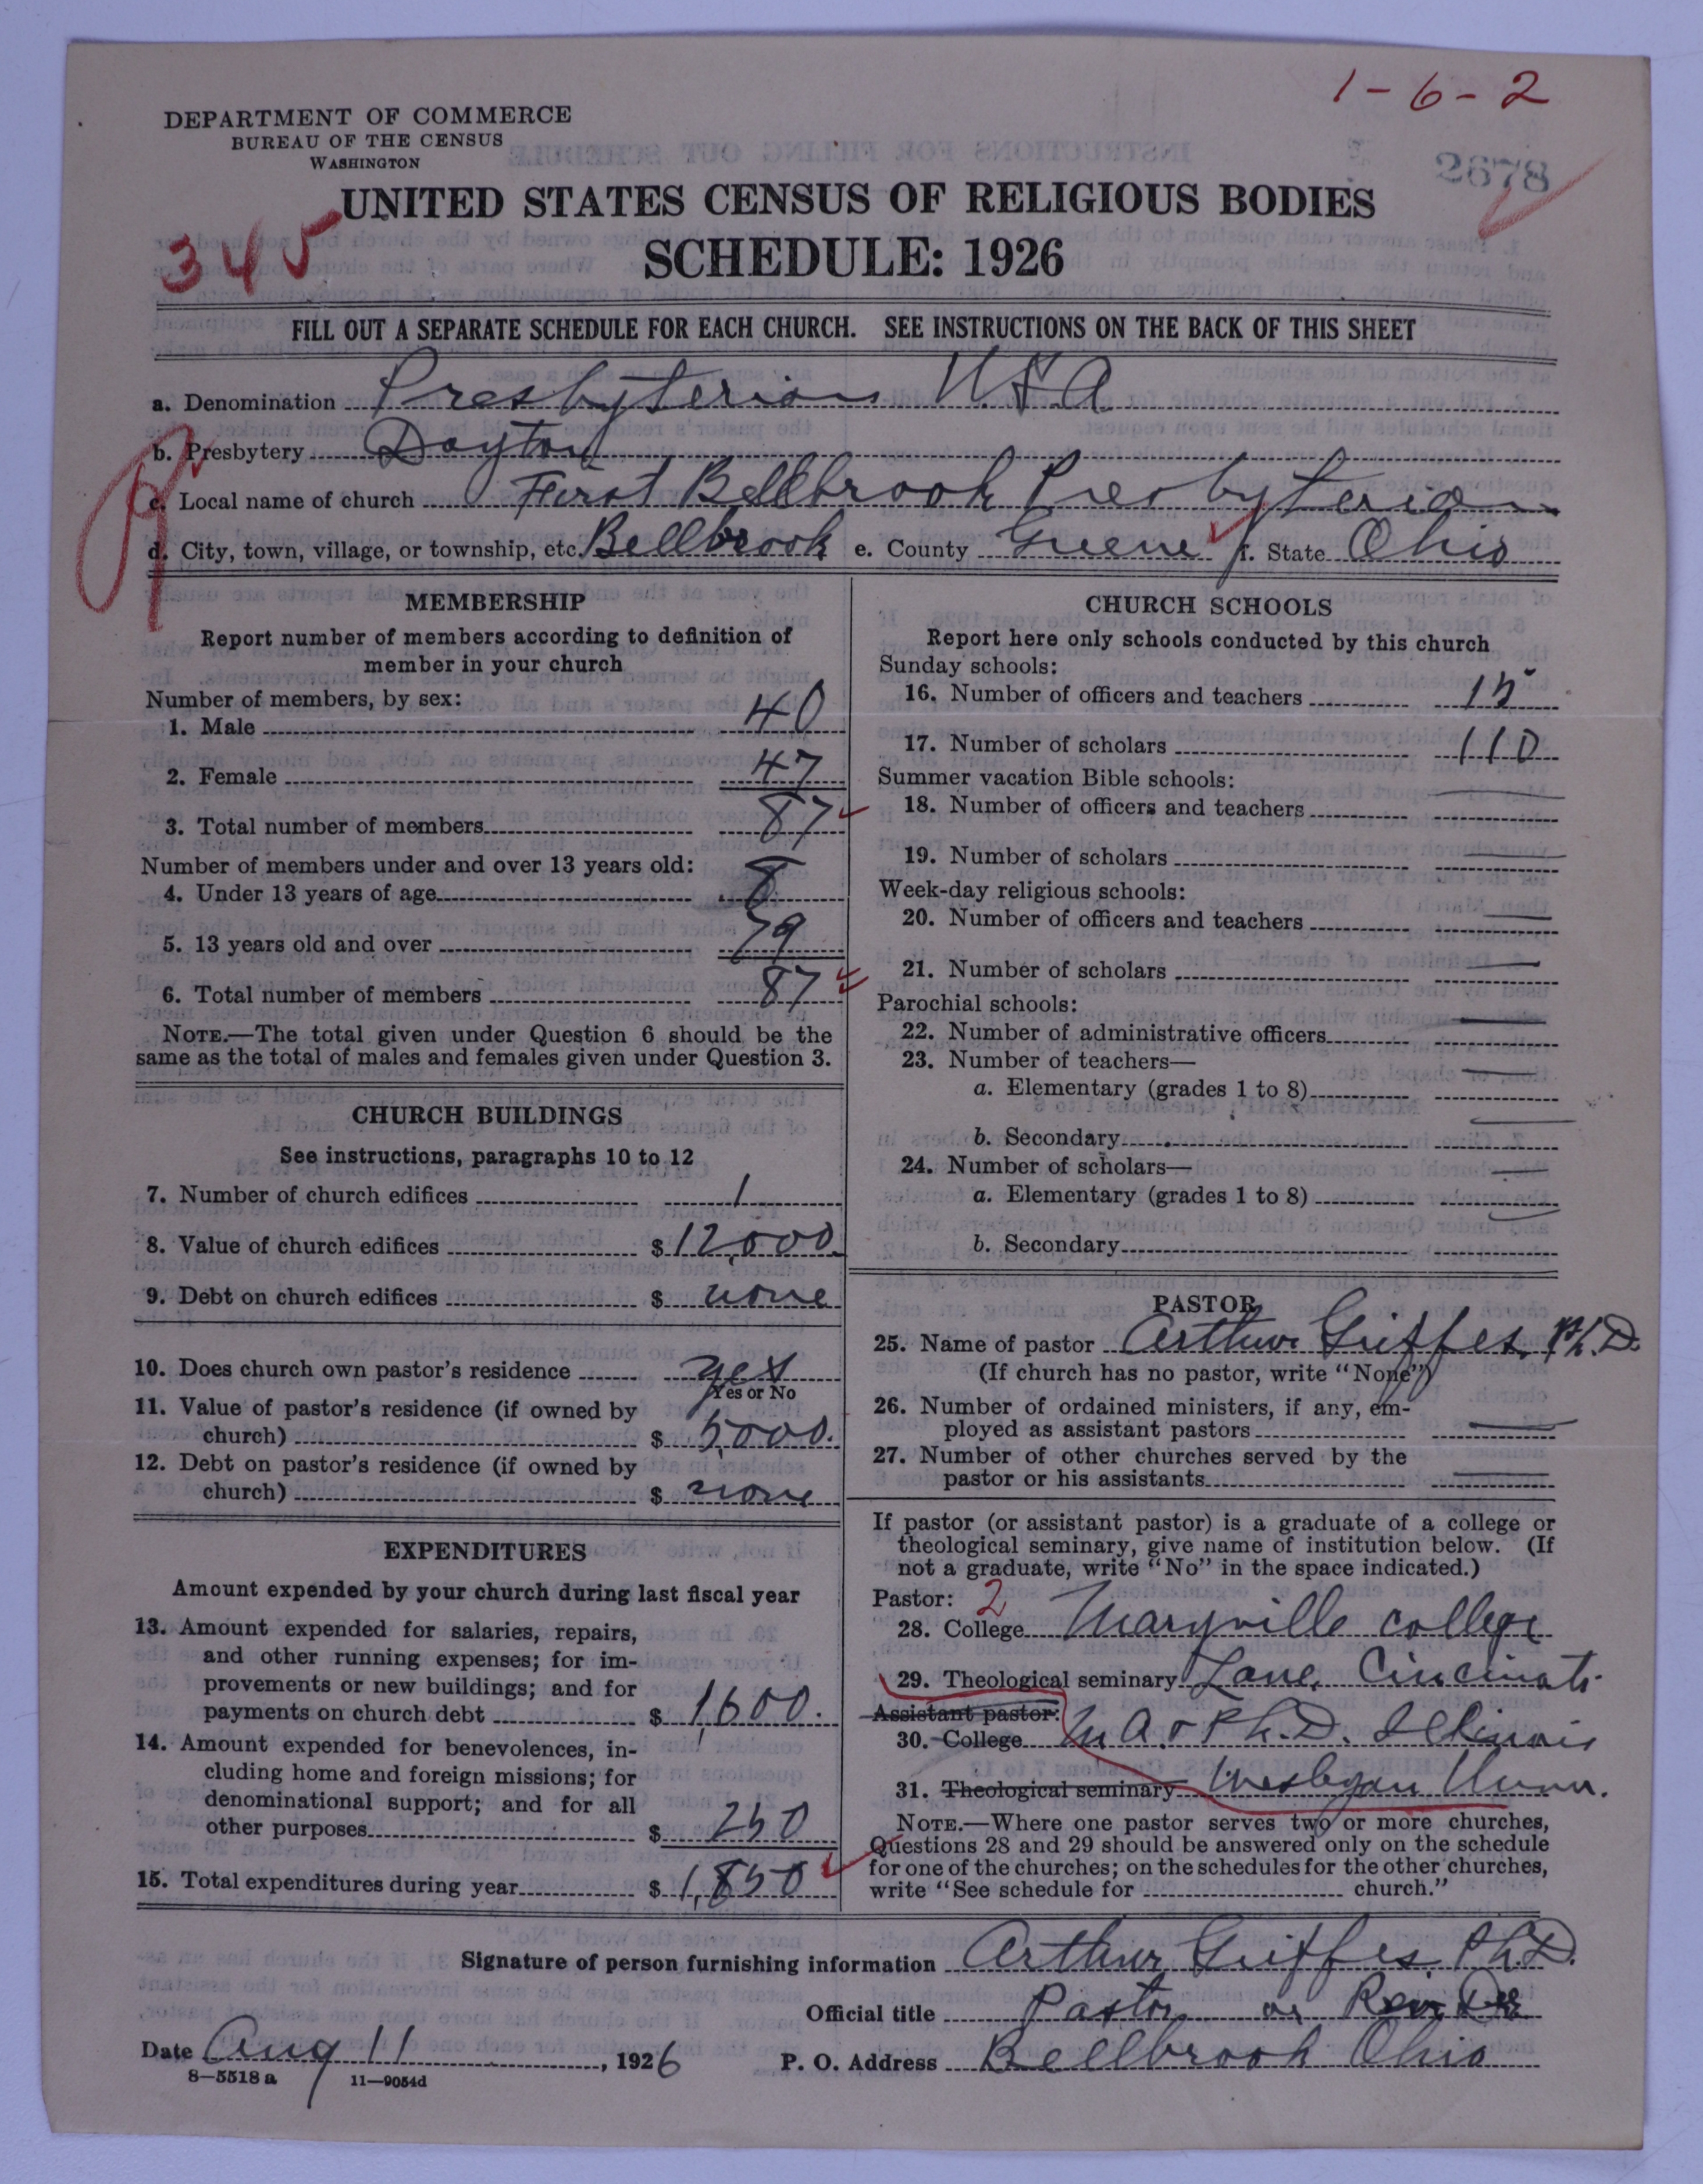 1-6-2
DEPARTMENT OF COMMERCE
BUREAU OF THE CENSUS
WASHINGTON
2678
UNITED STATES CENSUS OF RELIGIOUS BODIES
345
SCHEDULE: 1926
FILL OUT A SEPARATE SCHEDULE FOR EACH CHURCH. SEE INSTRUCTIONS ON THE BACK OF THIS SHEET
a. Denomination Presbyterian U.S.A.
b. Presbytery Dayton
c. Local name of church First Bellbrook Presbyterian
d. City, town, village, or township, etc. Bellbrook e. County Greene f. State Ohio
MEMBERSHIP
Report number of members according to definition of
member in your church
Number of members, by sex:
1. Male 40
2. Female 47
3. Total number of members 87
Number of members under and over 13 years old:
4. Under 13 years of age 8
5. 13 years old and over 79
6. Total number of members 87
NOTE.—The total given under Question 6 should be the
same as the total of males and females given under Question 3.
CHURCH BUILDINGS
See instructions, paragraphs 10 to 12
7. Number of church edifices 1
8. Value of church edifices $ 12,000.
9. Debt on church edifices $ none
10. Does church own pastor's residence yes
Yes or No
11. Value of pastor's residence (if owned by
church) $ 5,000.
12. Debt on pastor's residence (if owned by
church) $ none
EXPENDITURES
Amount expended by your church during last fiscal year
13. Amount expended for salaries, repairs,
and other running expenses; for im-
provements or new buildings; and for
payments on church debt $ 1,600.
14. Amount expended for benevolences, in-
cluding home and foreign missions; for
denominational support; and for all
other purposes $ 250
15. Total expenditures during year $ 1,850
CHURCH SCHOOLS
Report here only schools conducted by this church
Sunday schools:
16. Number of officers and teachers 15
17. Number of scholars 110
Summer vacation Bible schools:
18. Number of officers and teachers —
19. Number of scholars —
Week-day religious schools:
20. Number of officers and teachers —
21. Number of scholars —
Parochial schools:
22. Number of administrative officers —
23. Number of teachers—
a. Elementary (grades 1 to 8) —
b. Secondary —
24. Number of scholars—
a. Elementary (grades 1 to 8) —
b. Secondary —
PASTOR
25. Name of pastor Arthur Griffes, Ph.D.
(If church has no pastor, write "None")
26. Number of ordained ministers, if any, em-
ployed as assistant pastors —
27. Number of other churches served by the
pastor or his assistants —
If pastor (or assistant pastor) is a graduate of a college or
theological seminary, give name of institution below. (If
not a graduate, write "No" in the space indicated.)
Pastor: 2
28. College Maryville college
29. Theological seminary Lane, Cincinati
Assistant pastor:
30. College M A. & Ph. D. Illinois
31. Theological seminary Wesleyan Unn.
NOTE.—Where one pastor serves two or more churches,
Questions 28 and 29 should be answered only on the schedule
for one of the churches; on the schedules for the other churches,
write "See schedule for church."
Signature of person furnishing information Arthur Griffes, Ph.D.
Official title Pastor or Rev. Dr
Date Aug 11, 1926 P. O. Address Bellbrook Ohio
8—5518 a 11—9054d